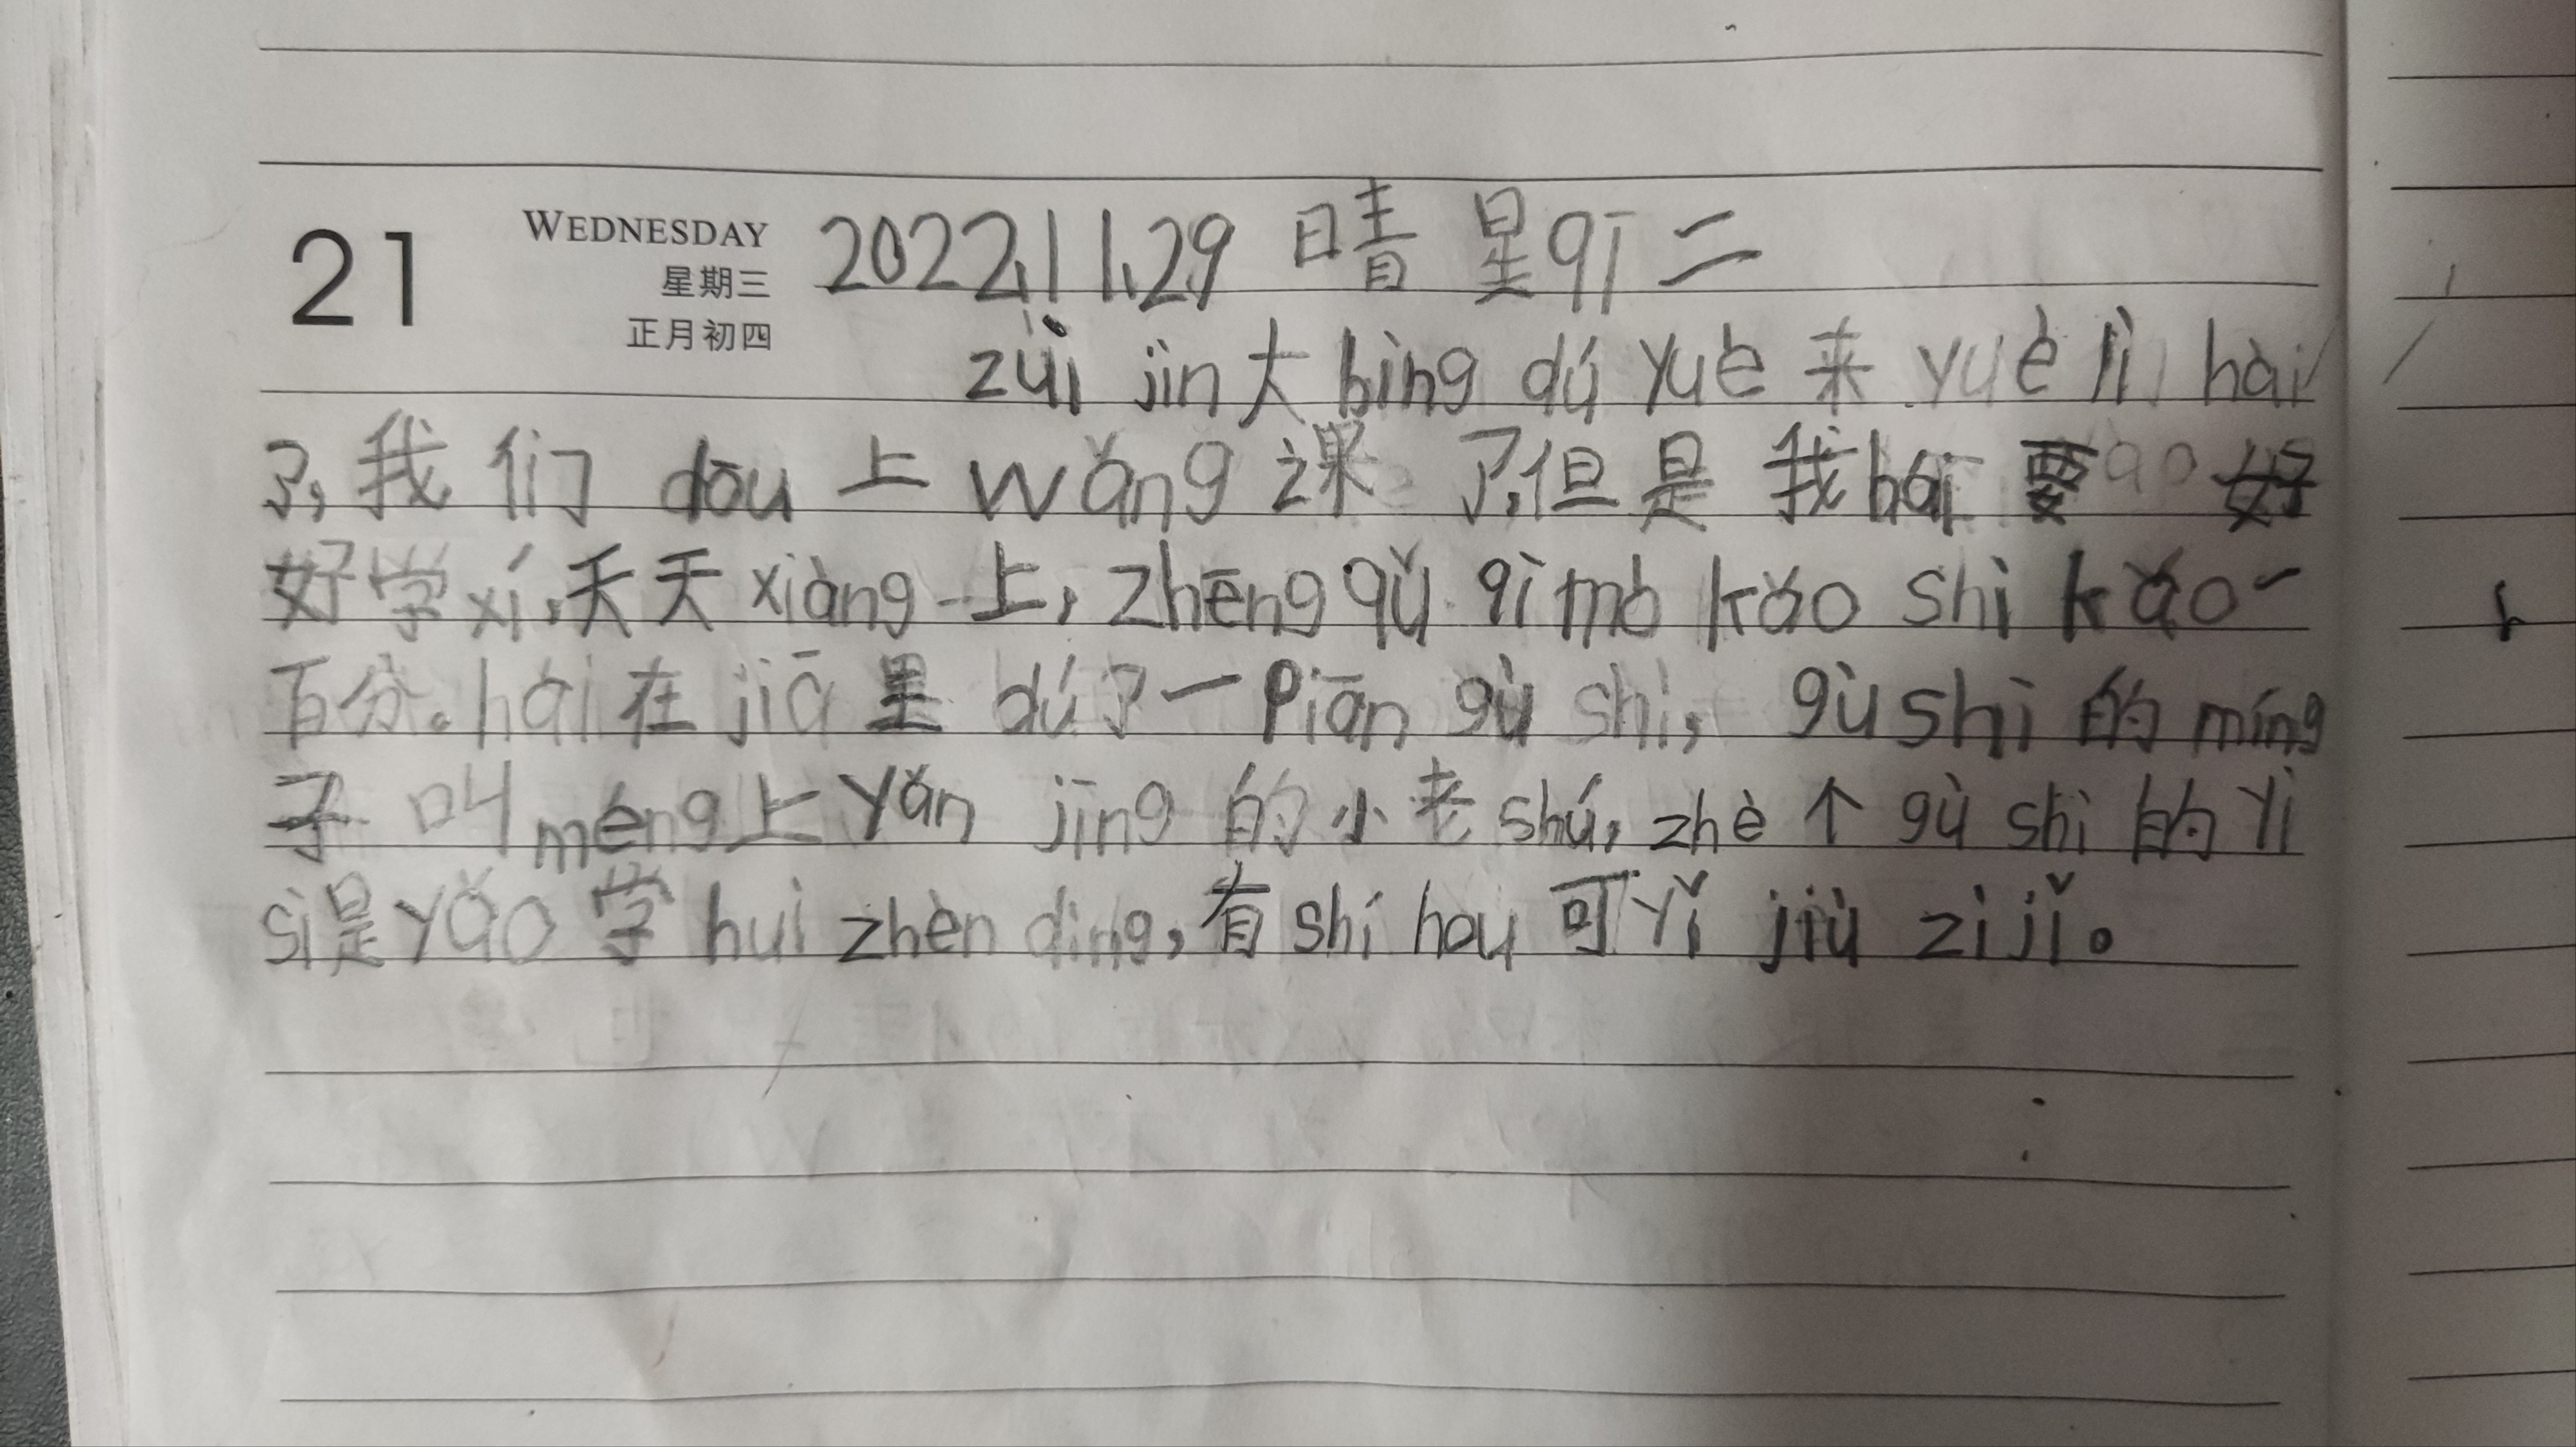 21 WEDNESDAY 2022.11.29 晴 星qī二
星期三
正月初四
zùi jìn大bìng dú yuè 来 yuè lì hài
了,我们 dōu 上 wǎng 课 了,但是 我hái 要 好
好学xí,天天xiàng上,zhēng qǔ qī mò kǎo shì kǎo一
百分。hái在jiā里 dú了一piān gù shì, gù shì 的 míng
子 叫méng上yǎn jīng 的小老shǔ, zhè个 gù shì 的 yì
si是yào 学 huì zhèn dìng,有shí hou 可yǐ jiù zì jǐ。